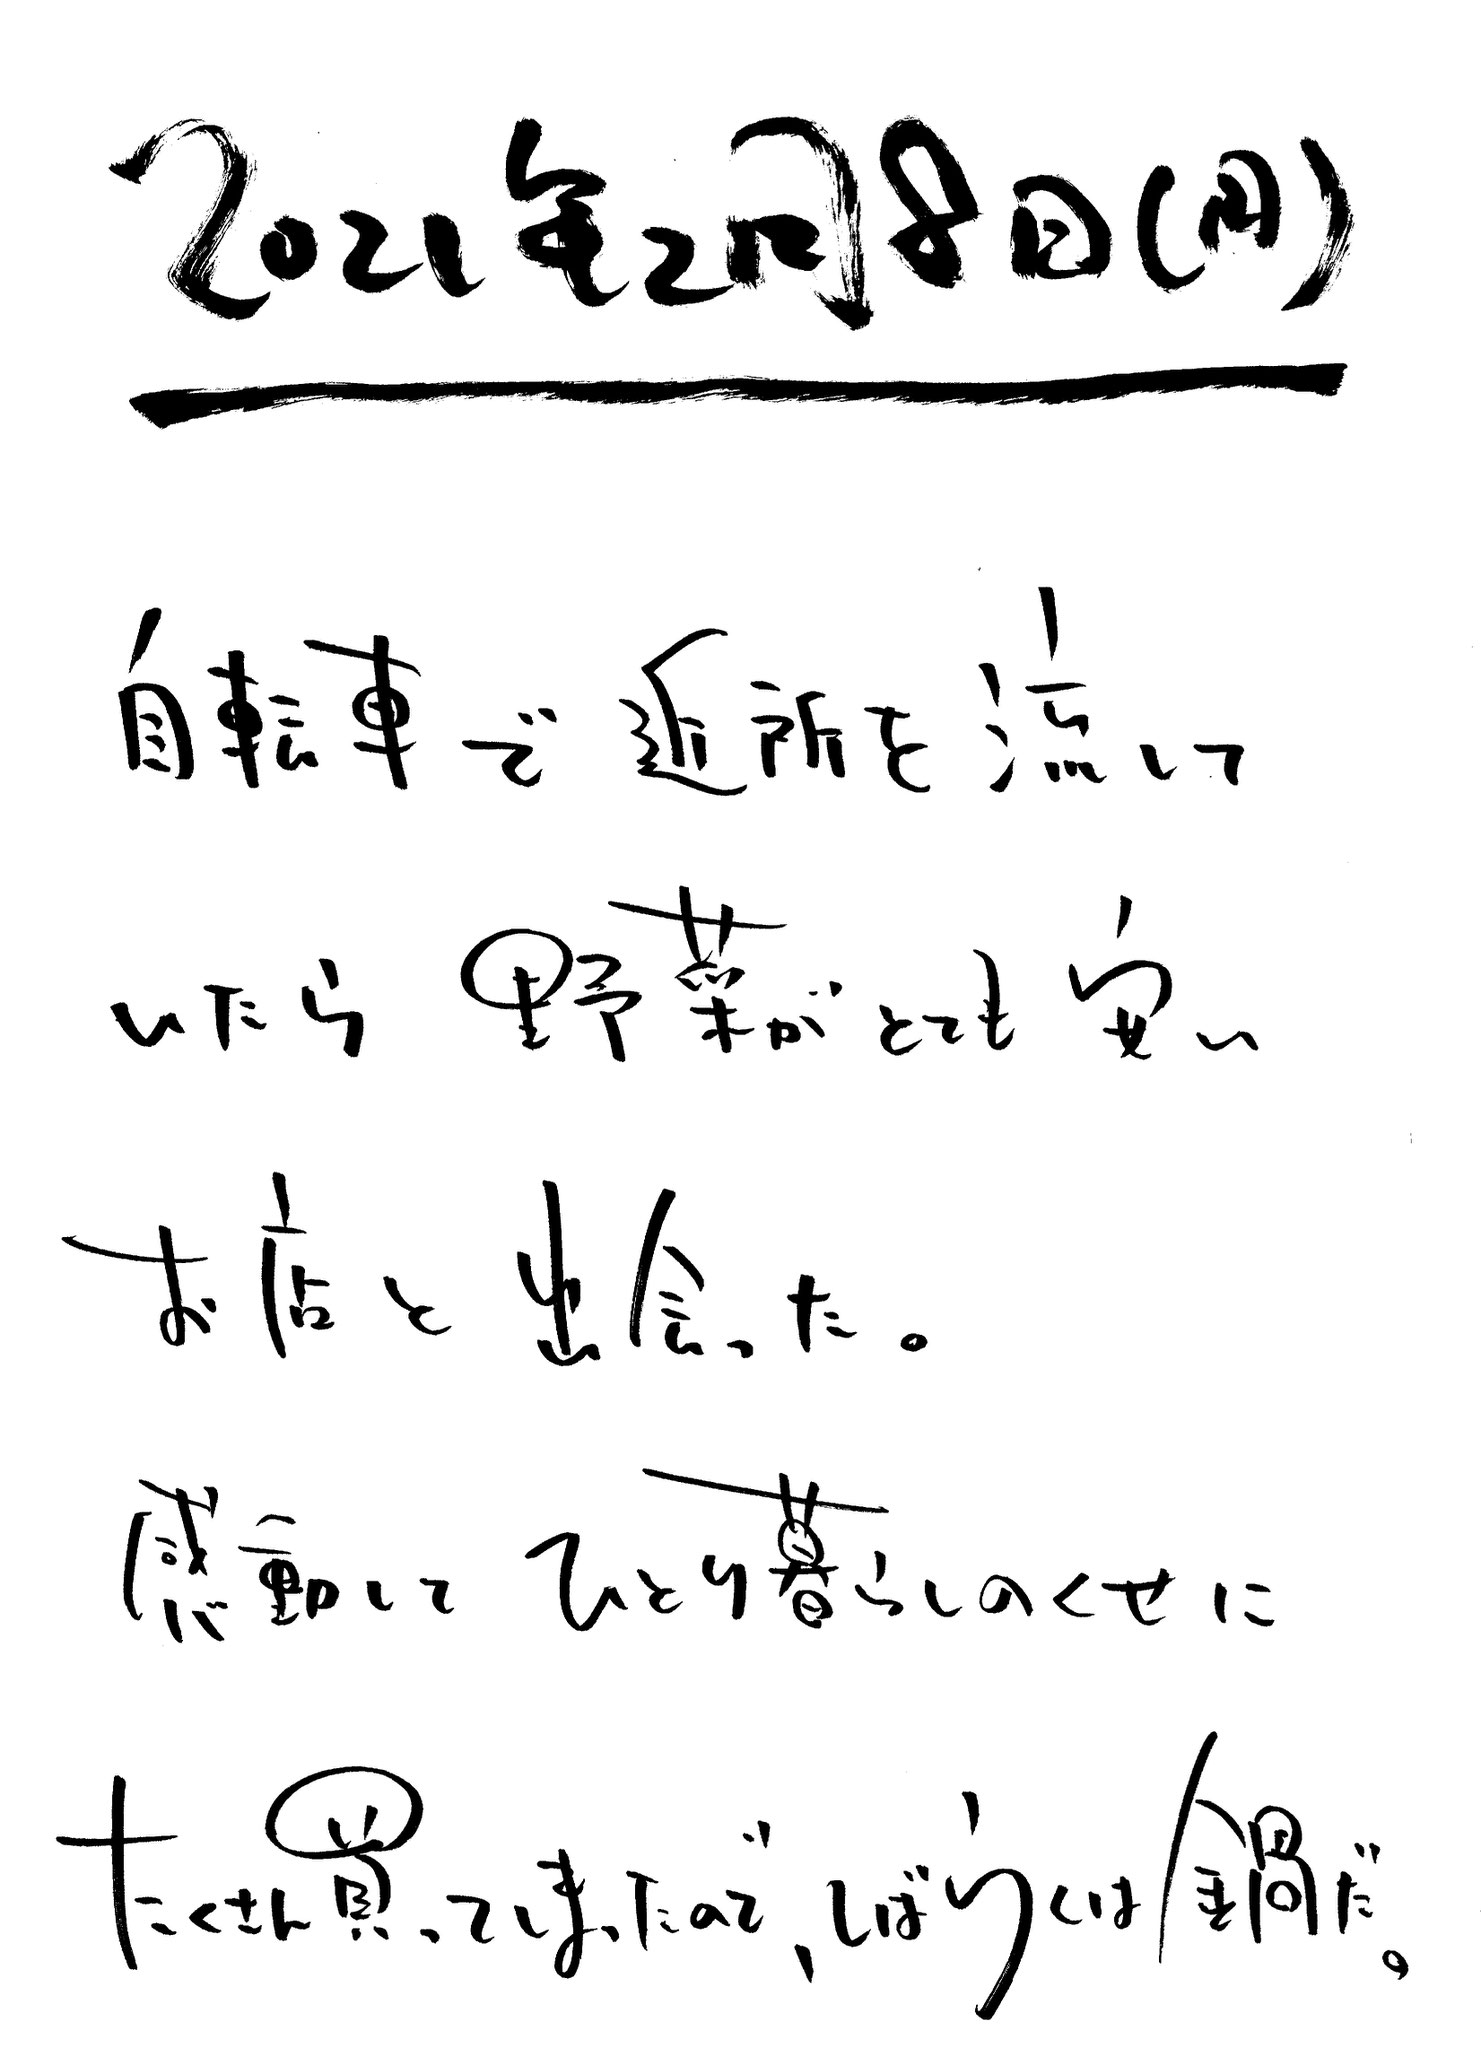 2021年2月8日(月)
自転車で近所を流して
いたら野菜がとても安い
お店と出会った。
感動してひとり暮らしのくせに
たくさん買ってしまったので、しばらくは鍋だ。